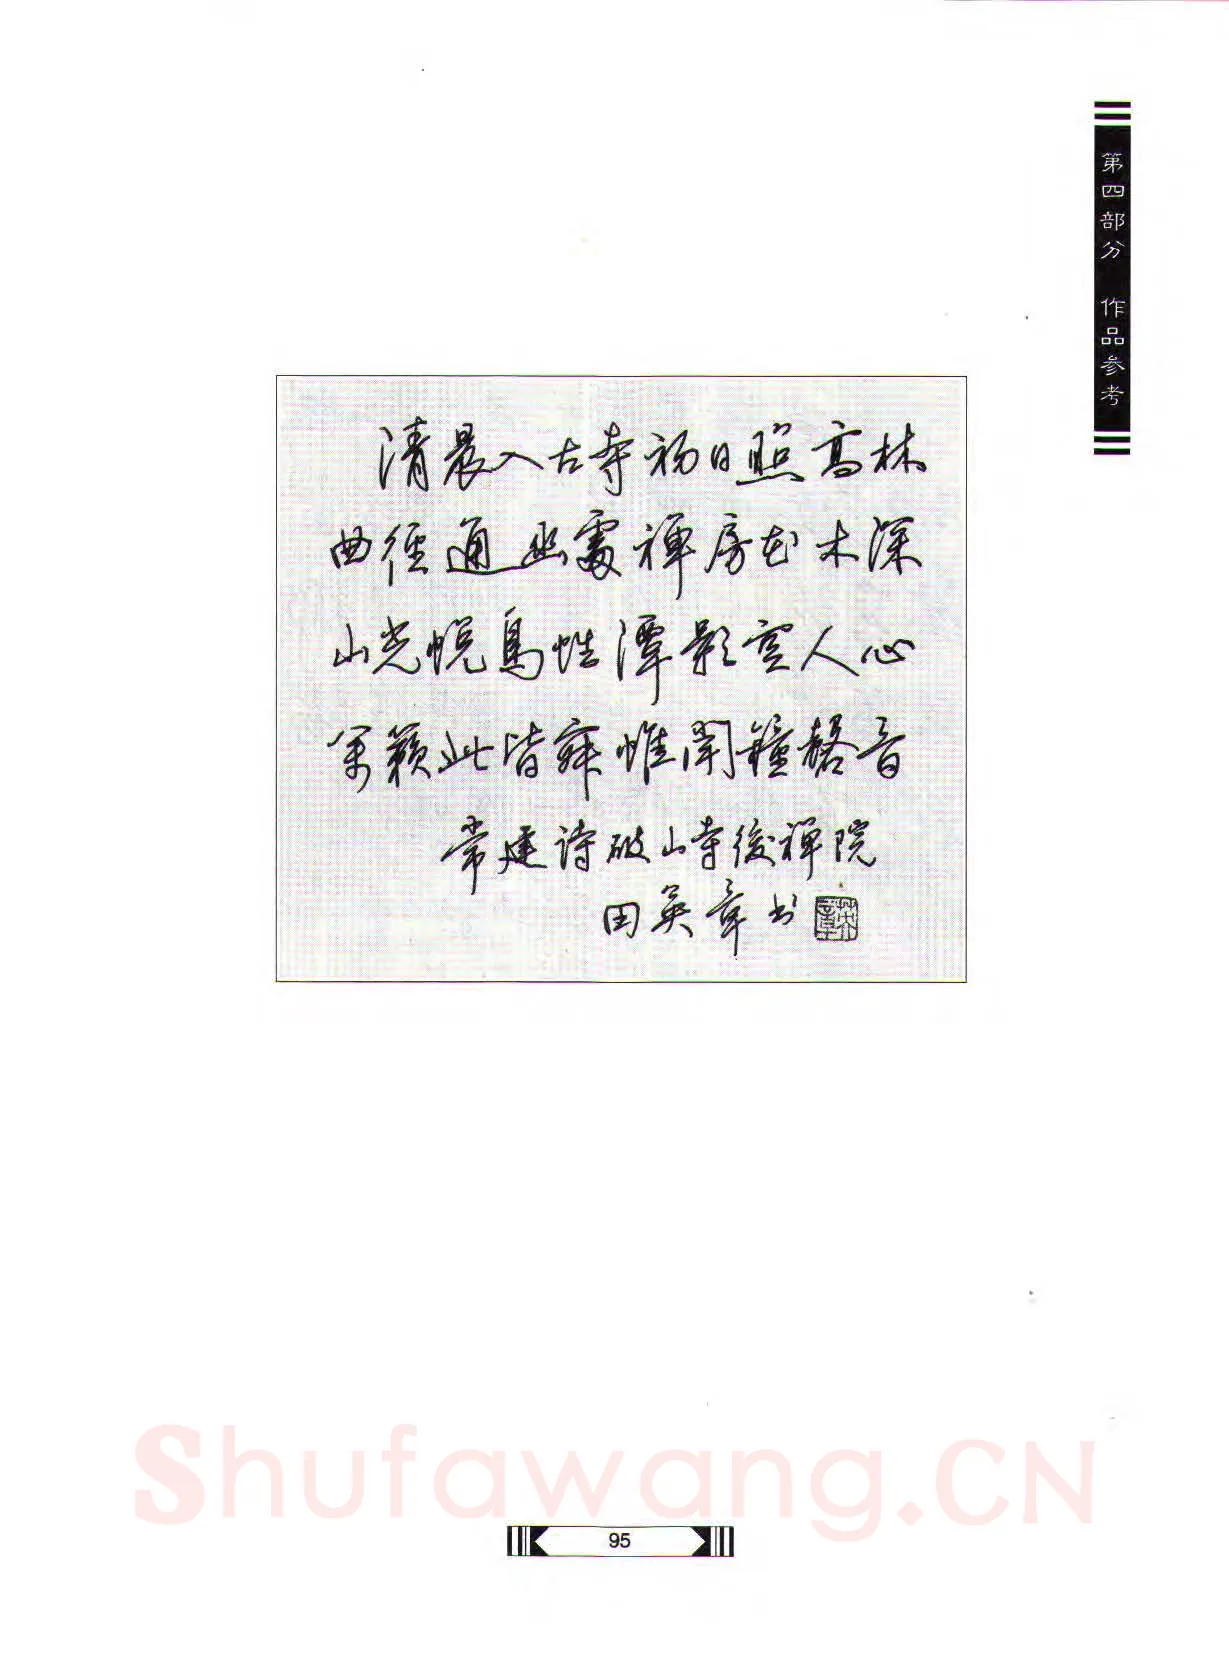 第四部分 作品参考
清晨入古寺初日照高林
曲徑通幽處禪房花木深
山光悦鳥性潭影空人心
萬籟此皆寂惟聞鐘磬音
常建诗破山寺後禪院
田英章书
英章
Shufawang.CN
95